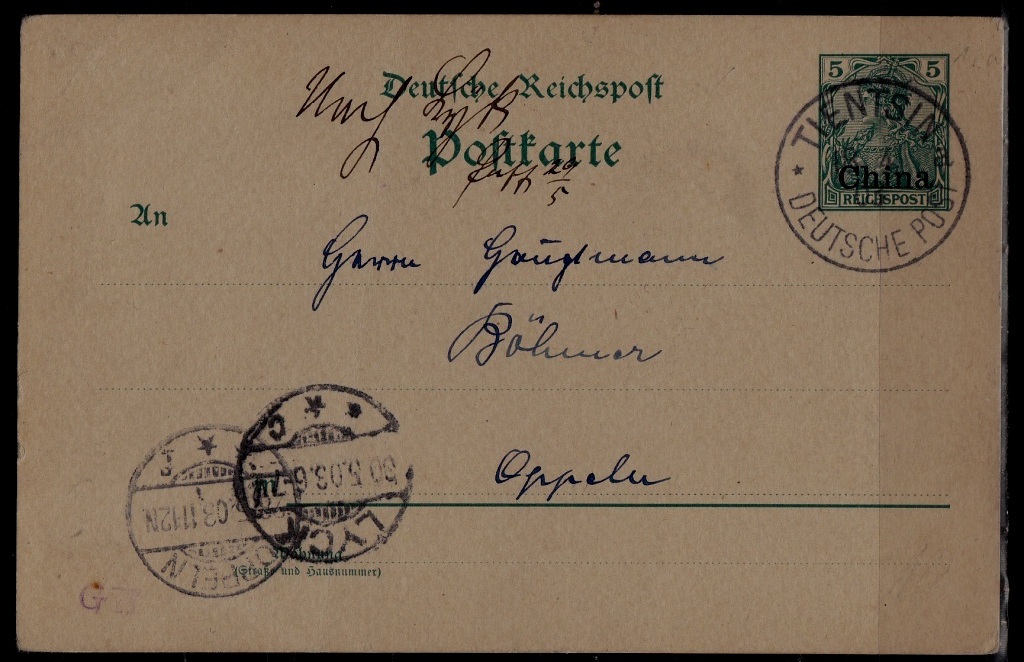 Deutsche Reichspost
Nach Lyck
Postkarte
29/5
5 5
China
REICHSPOST
* TIENTSIN *
DEUTSCHE POST
An
Herrn Hauptmann
Böhmer
Oppeln
LYCK
30.5.03.6-7V
* * C
OPPELN
.03.11-12N
Wohnung
(Straße und Hausnummer)